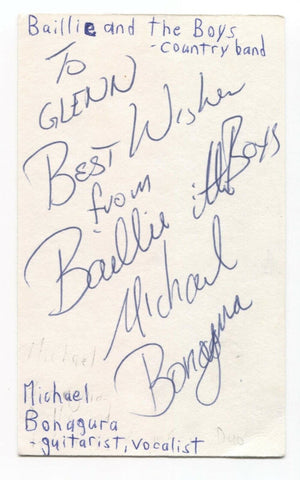 Baillie and the Boys
- country band
To
GLENN
BEST Wishes
from
Baillie & the Boys
Michael
Bonagura
Michael
Michael
Bonagura
- guitarist, vocalist
Duo